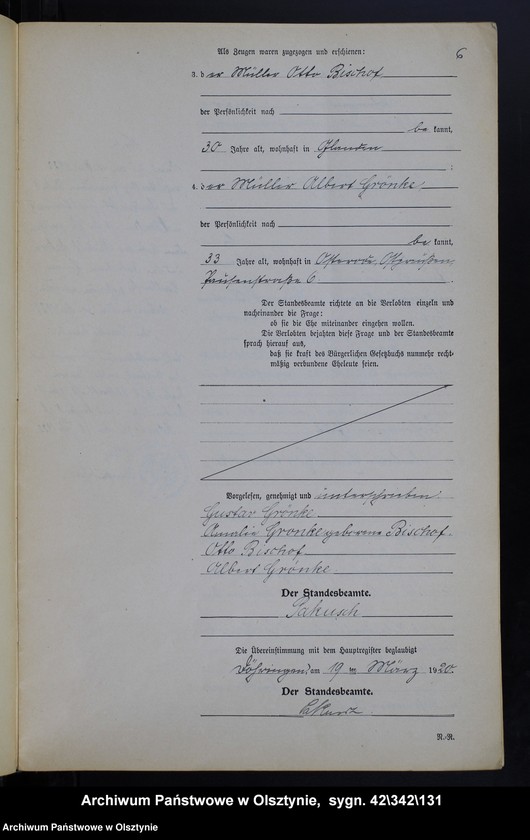 6
Als Zeugen waren zugezogen und erschienen:
3. der Müller Otto Bischof
der Persönlichkeit nach
be kannt,
30 Jahre alt, wohnhaft in Glanden
4. der Müller Albert Grönke
der Persönlichkeit nach
be kannt,
33 Jahre alt, wohnhaft in Osterode, Ostpreußen,
straße 6
Der Standesbeamte richtete an die Verlobten einzeln und
nacheinander die Frage:
ob sie die Ehe miteinander eingehen wollen.
Die Verlobten bejahten diese Frage und der Standesbeamte
sprach hierauf aus,
daß sie kraft des Bürgerlichen Gesetzbuchs nunmehr recht-
mäßig verbundene Eheleute seien.
Vorgelesen, genehmigt und unterschrieben:
Gustav Grönke
Amalie Gronke geborene Bischof.
Otto Bischof
Albert Grönke
Der Standesbeamte.
Die Übereinstimmung mit dem Hauptregister beglaubigt
Döhringen, am 19 ten März 1920.
Der Standesbeamte.
N.-R.
Archiwum Państwowe w Olsztynie, sygn. 42\342\131
Archiwum Państwowe w Olsztynie